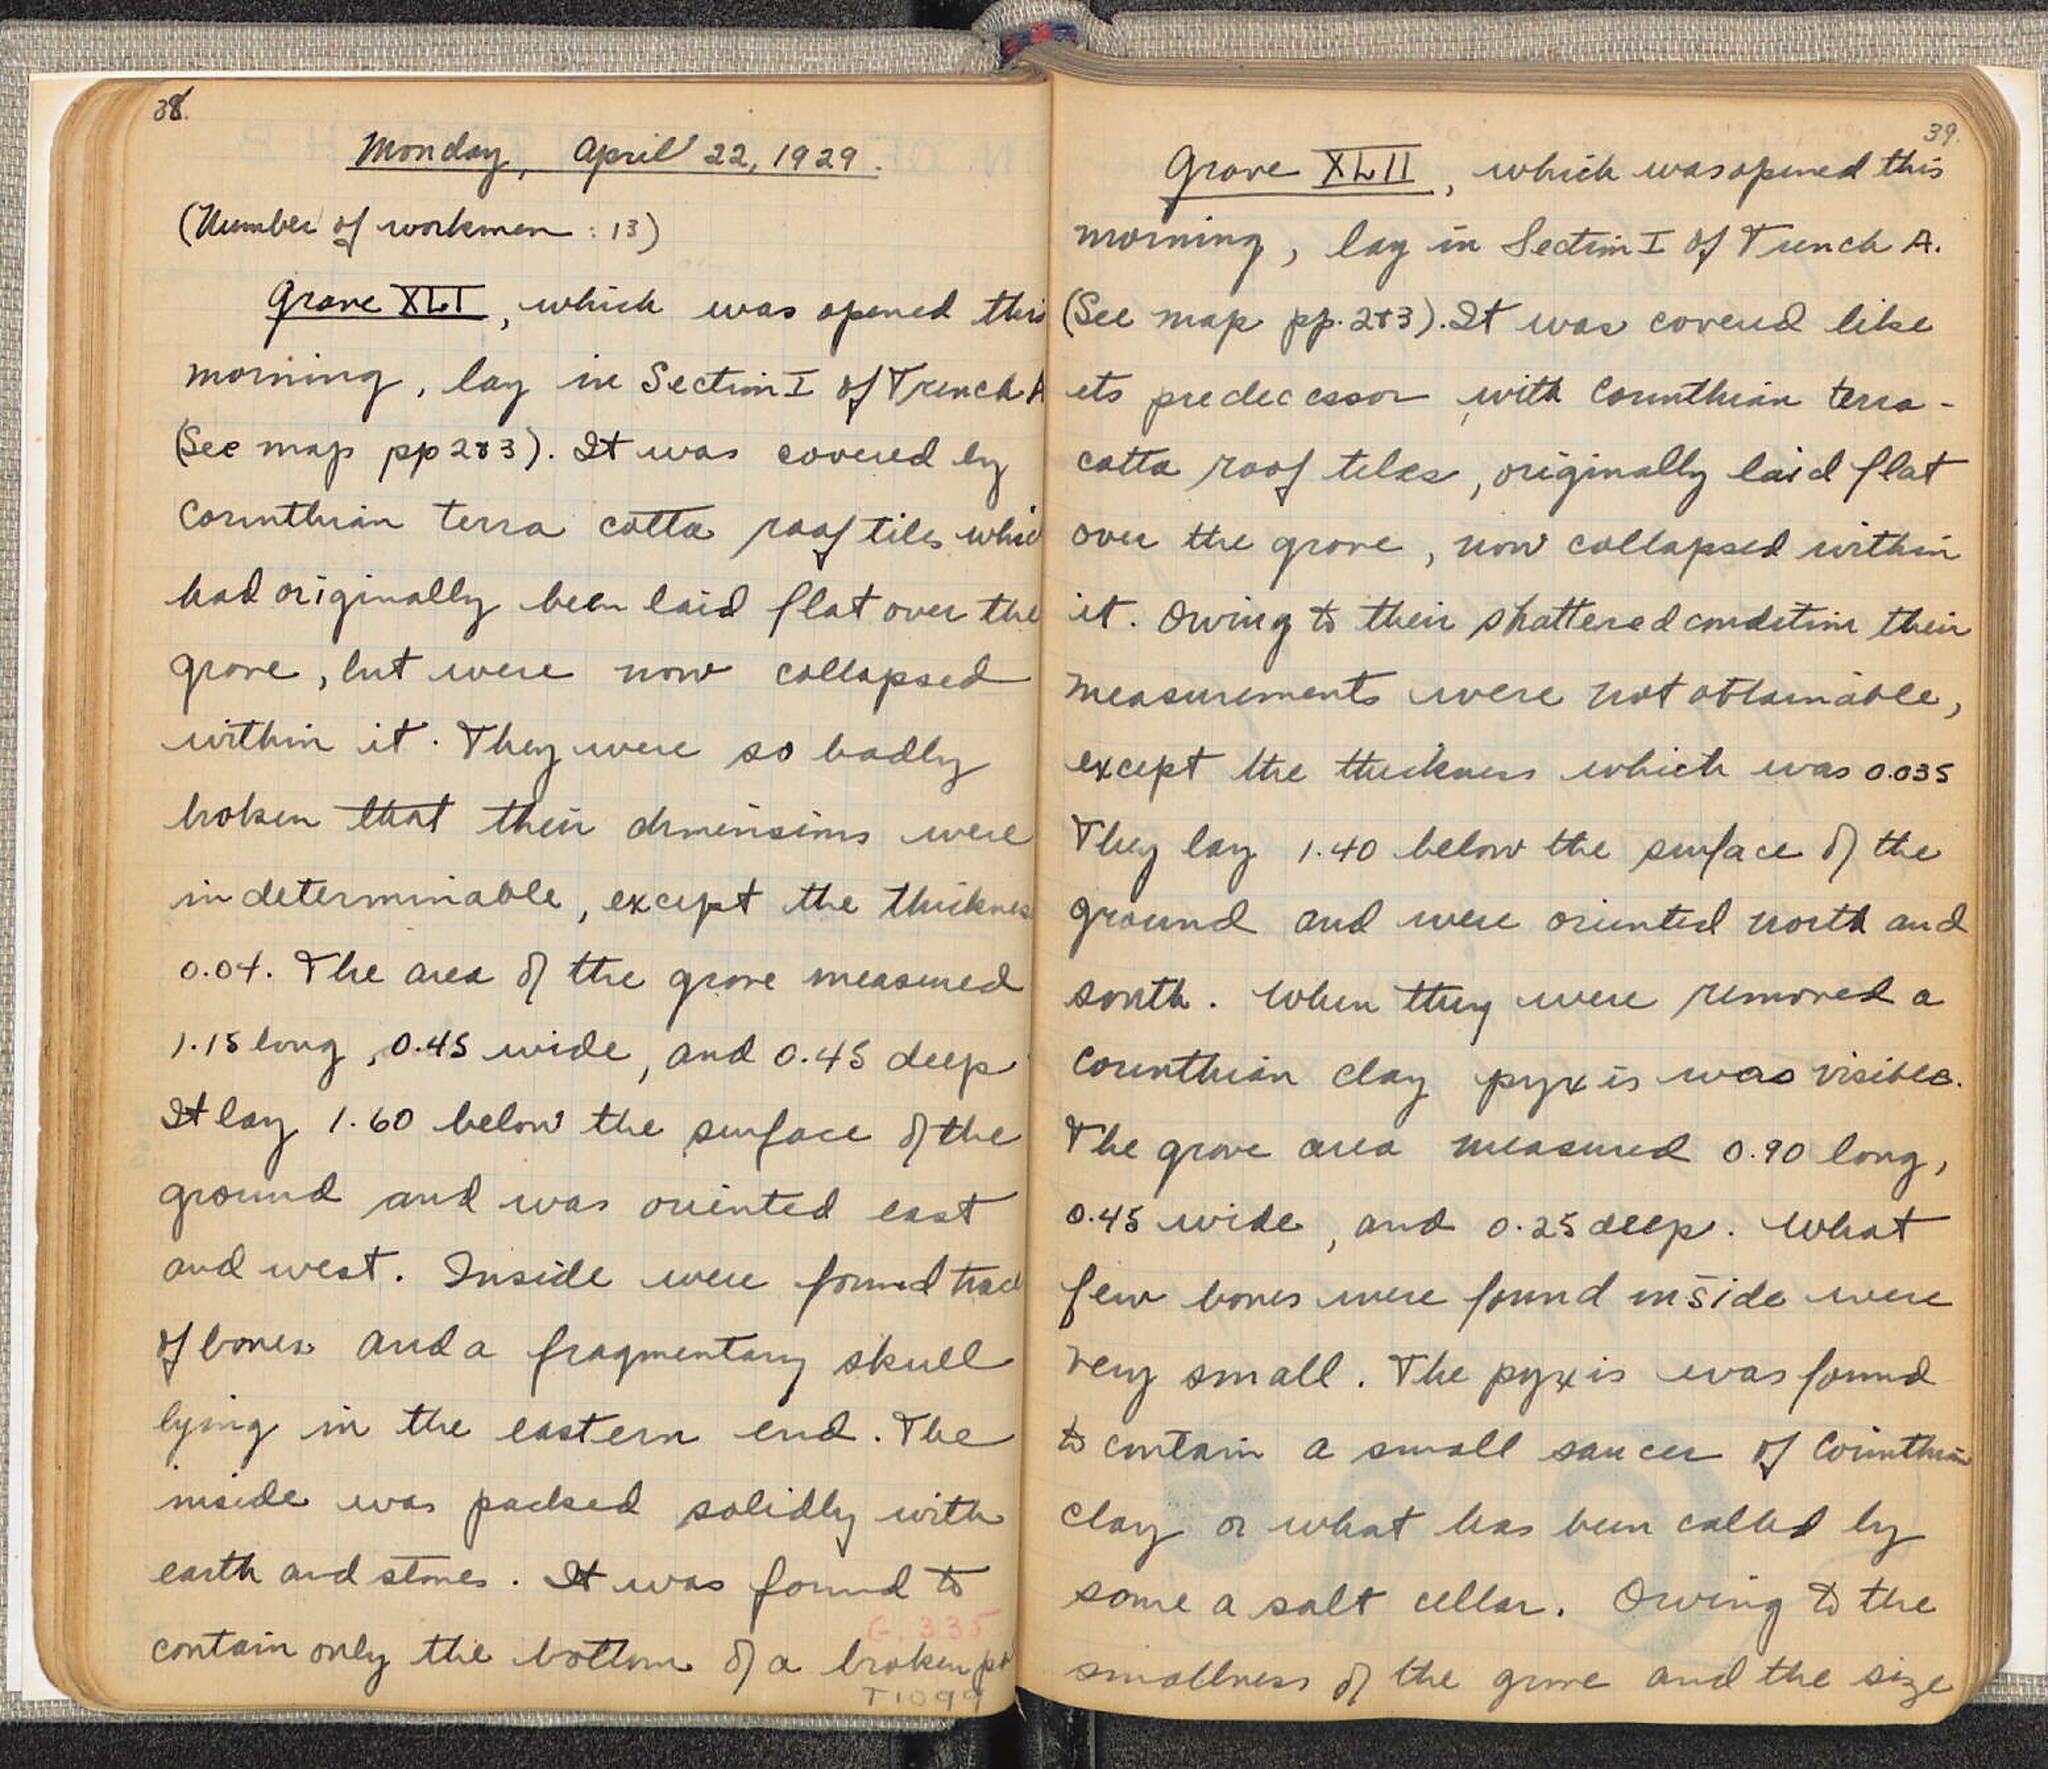 38.
Monday, April 22, 1929.
(Number of workmen : 13)
Grave XLI, which was opened this
morning, lay in Section I of Trench A
(See map pp 2&3). It was covered by
Corinthian terra cotta roof tiles whic
had originally been laid flat over the
grave, but were now collapsed
within it. They were so badly
broken that their dimensions were
indeterminable, except the thicknes
0.04. The area of the grave measured
1.15 long, 0.45 wide, and 0.45 deep
It lay 1.60 below the surface of the
ground and was oriented east
and west. Inside were found trac
of bones and a fragmentary skull
lying in the eastern end. The
inside was packed solidly with
earth and stones. It was found to
G. 335
contain only the bottom of a broken po
T1099
39.
Grave XLII, which was opened this
morning, lay in Section I of Trench A.
(See map pp. 2&3). It was covered like
its predecessor with Corinthian terra-
cotta roof tiles, originally laid flat
over the grave, now collapsed within
it. Owing to their shattered condition their
measurements were not obtainable,
except the thickness which was 0.035
They lay 1.40 below the surface of the
ground and were oriented north and
south. When they were removed a
Corinthian clay pyxis was visible.
The grave area measured 0.90 long,
0.45 wide, and 0.25 deep. What
few bones were found inside were
very small. The pyxis was found
to contain a small saucer of Corinthian
clay or what has been called by
some a salt cellar. Owing to the
smallness of the grave and the size